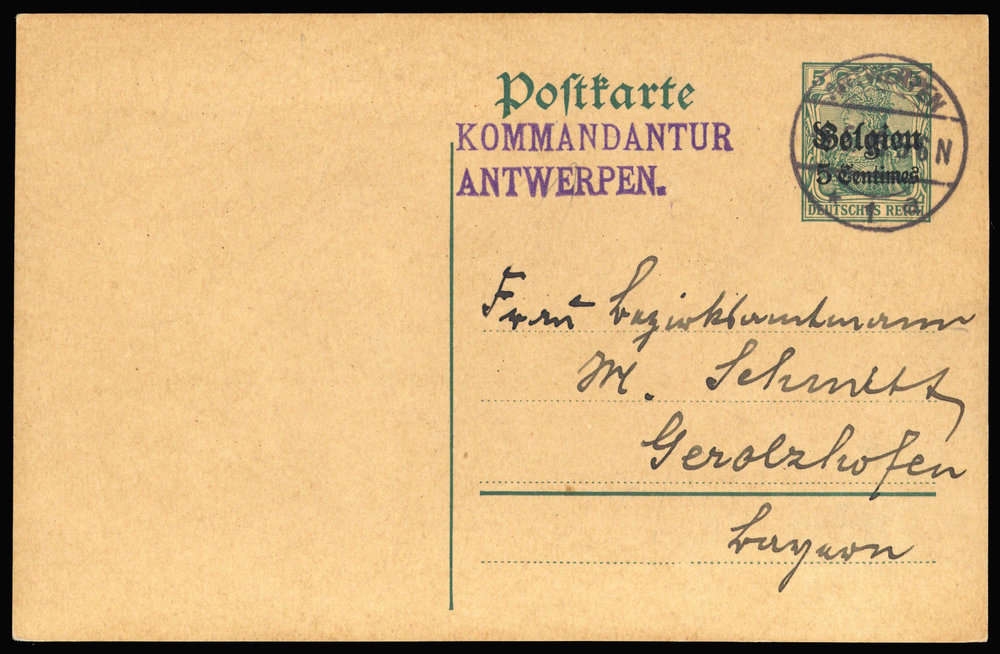 Postkarte
KOMMANDANTUR
ANTWERPEN.
5 5
Belgien
5 Centimes
DEUTSCHES REICH
N
* 1 *
Frau Bezirksamtmann
M. Schmitt,
Gerolzhofen
Bayern